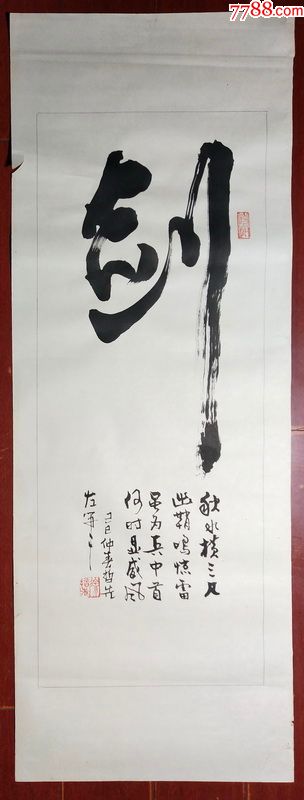 7788.com
剑
秋水横三尺
出鞘鸣惊雷
虽为兵中首
何时显威风
己巳仲春哲生
左笔